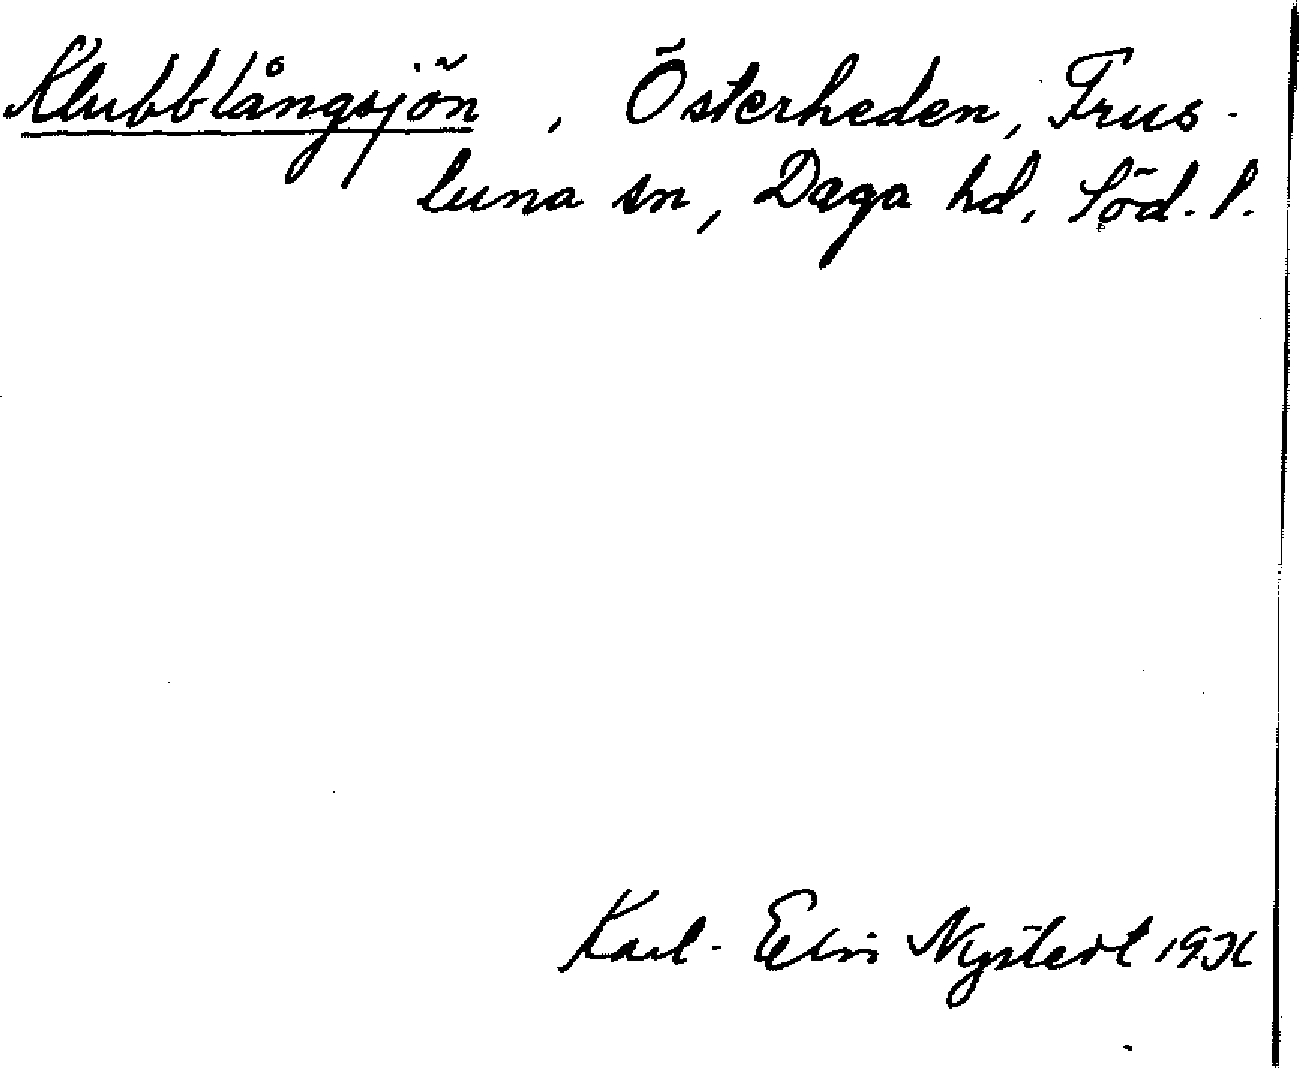 Klubblångsjön, Österheden, Frus-
luna sn, Daga hd, Söd. l.
Karl-Elis Nystedt